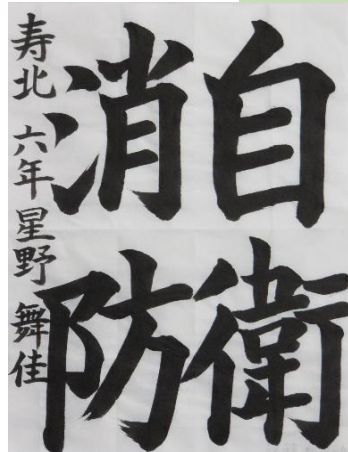 自衛
消防
寿北 六年 星野 舞佳